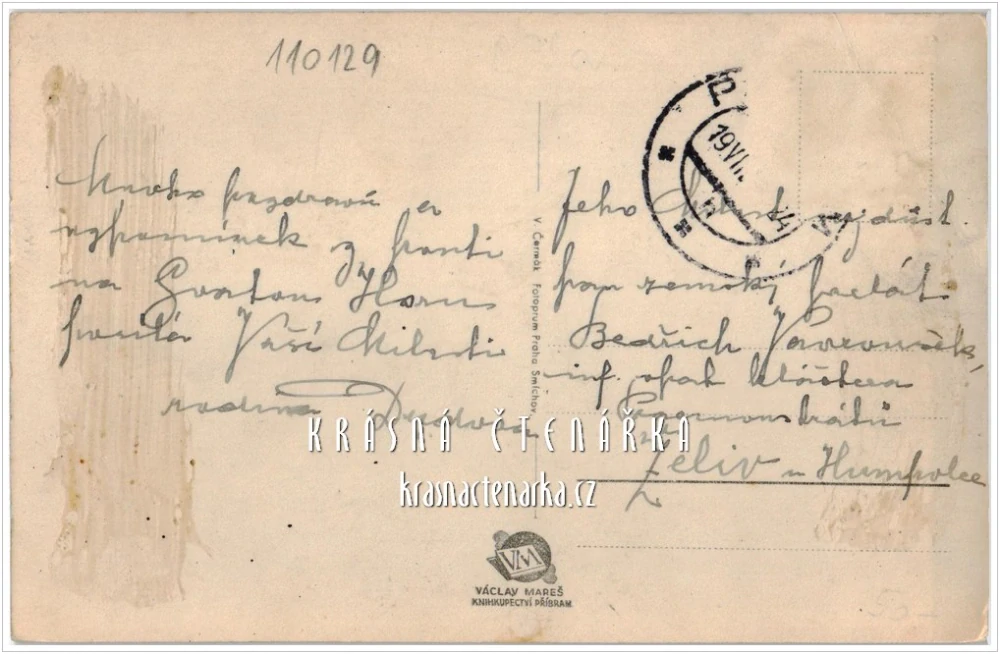 110129
Mnoho pozdravů a
vzpomínek z pouti
na Svatou Horu
posílá Vaší Milosti
rodina
V. Čermák Fotoprum Praha Smíchov
P
19VII
Jeho Milost nejdůst.
pan zemský prelát
Bedřich Vavroušek,
inf. opat kláštera
Premonstrátů
Želiv u Humpolce
KRÁSNÁ ČTENÁŘKA
krasnactenarka.cz
VM
VÁCLAV MAREŠ
KNIHKUPECTVÍ PŘÍBRAM
50-